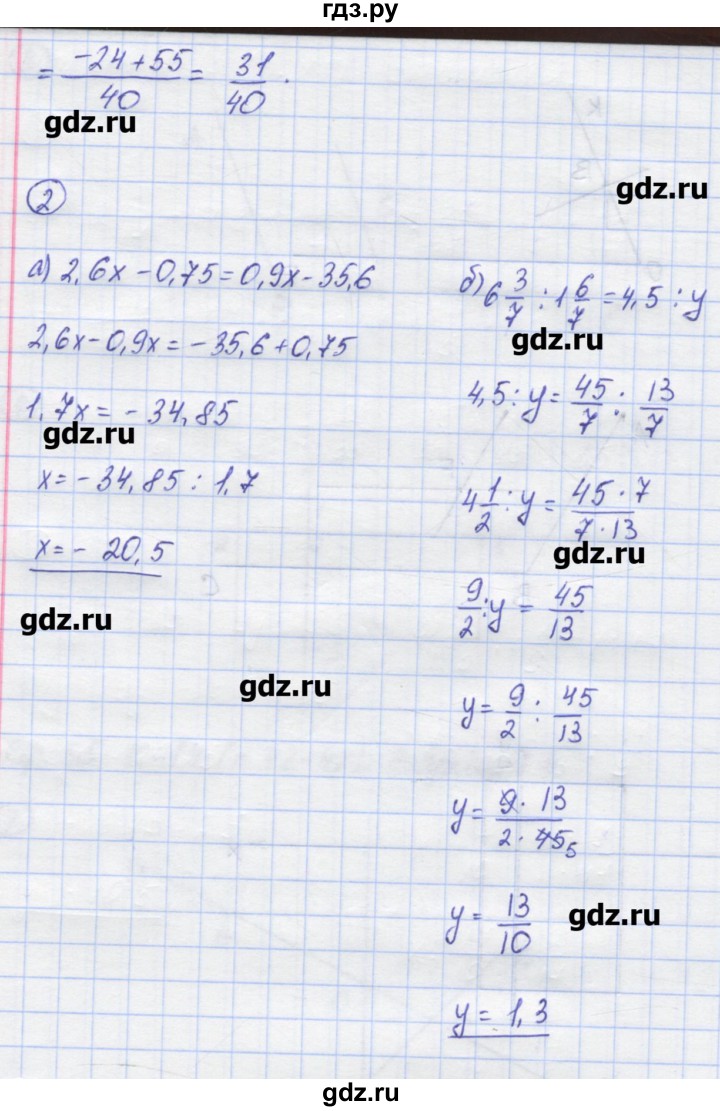 гдз.ру
= (-24+55)/40 = 31/40.
gdz.ru
gdz.ru
2
а) 2,6x - 0,75 = 0,9x - 35,6
2,6x - 0,9x = - 35,6 + 0,75
1,7x = - 34,85
gdz.ru
x = - 34,85 : 1,7
x = - 20,5
gdz.ru
gdz.ru
б) 6 3/7 : 1 6/7 = 4,5 : y
gdz.ru
4,5 : y = 45/7 : 13/7
4 1/2 : y = (45 · 7)/(7 · 13)
gdz.ru
9/2 : y = 45/13
y = 9/2 : 45/13
y = (9 · 13)/(2 · 45) 5
y = 13/10
gdz.ru
y = 1,3
gdz.ru